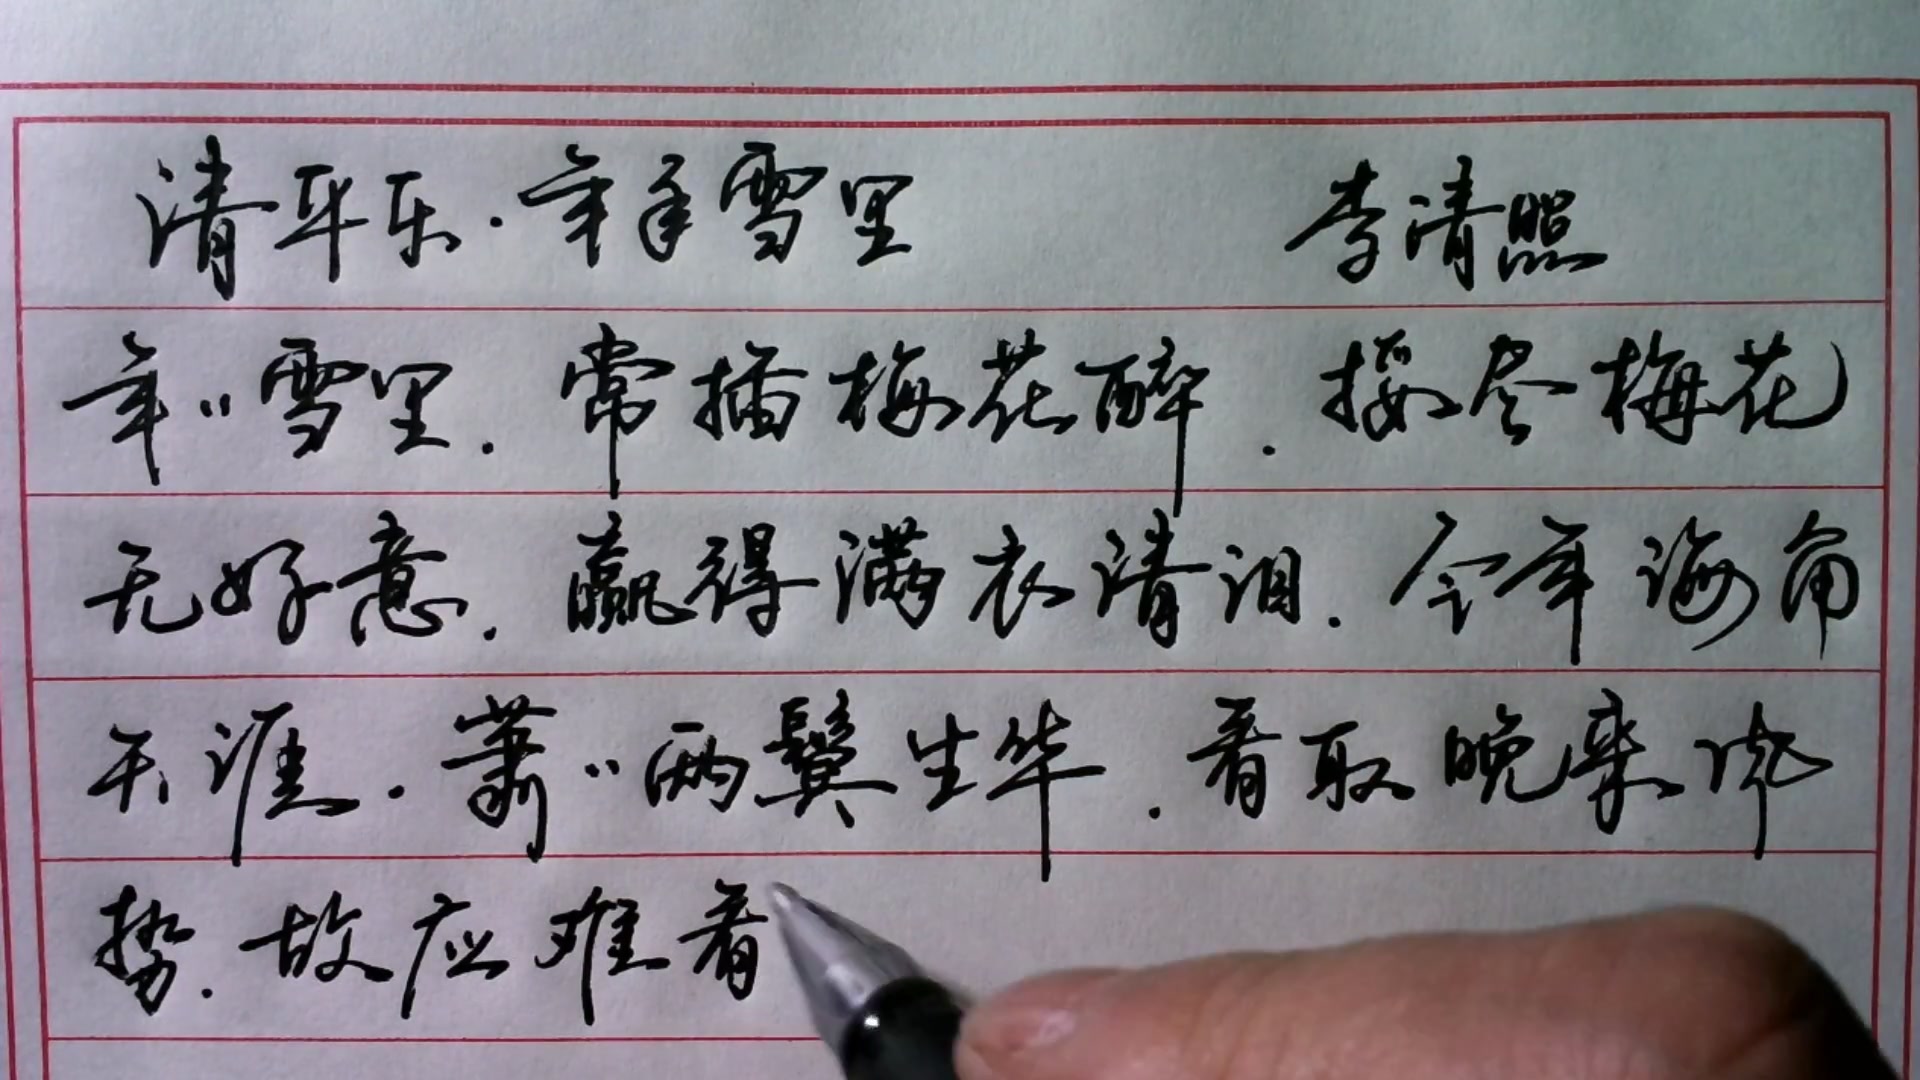 清平乐·年年雪里 李清照
年〃雪里.常插梅花醉.挼尽梅花
无好意.赢得满衣清泪.今年海角
天涯.萧〃两鬓生华.看取晚来风
势.故应难看